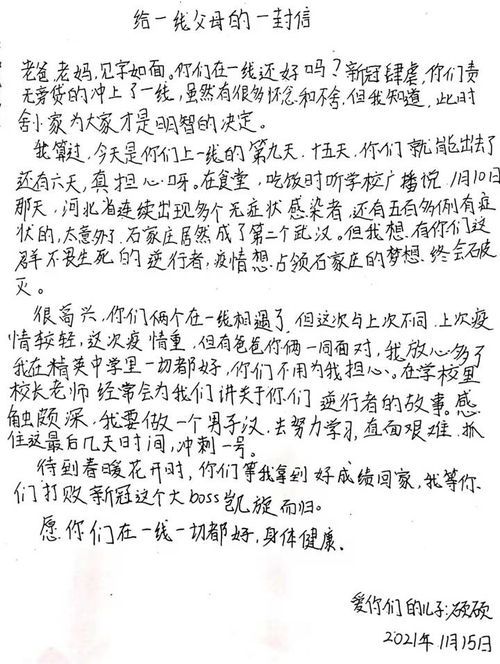 给一线父母的一封信
老爸、老妈,见字如面。你们在一线还好吗?新冠肆虐,你们责
无旁贷的冲上了一线,虽然有很多怀念和不舍,但我知道,此时
舍小家为大家才是明智的决定。
我算过,今天是你们上一线的第九天,十五天,你们就能出去了
还有六天,真担心呀。在食堂,吃饭时听学校广播说,1月10日
那天,河北省连续出现多个无症状感染者,还有五百多例有症
状的,太意外了,石家庄居然成了第二个武汉。但我想,有你们这
群不畏生死的逆行者,疫情想占领石家庄的梦想,终会破
灭。
很高兴,你们俩个在一线相遇了,但这次与上次不同,上次疫
情较轻,这次疫情重,但有爸爸你俩一同面对,我放心多了
我在精英中学里一切都好,你们不用为我担心。在学校里
校长老师经常会为我们讲关于你们逆行者的故事。感
触颇深,我要做一个男子汉,去努力学习,直面艰难,抓
住这最后几天日时间,冲刺一号。
待到春暖花开时,你们等我拿到好成绩回家,我等你
们打败新冠这个大boss凯旋而归。
愿你们在一线一切都好,身体健康。
爱你们的儿子:硕硕
2021年1月15日